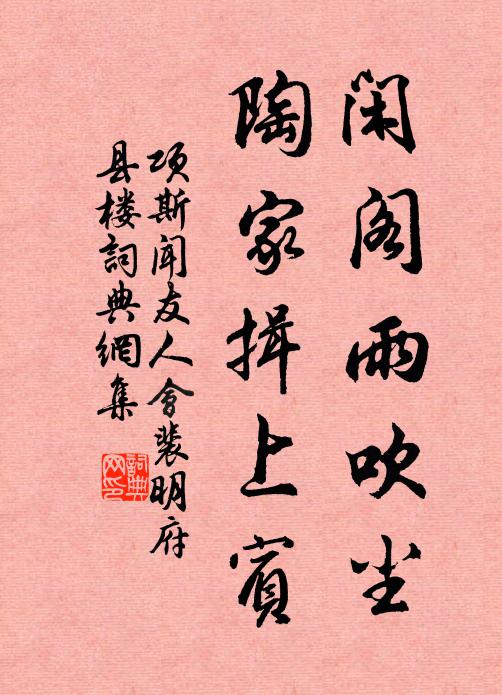 闲阁雨吹尘
陶家揖上宾
项斯闻友人会裴明府
县楼詞典網集
詞典網印